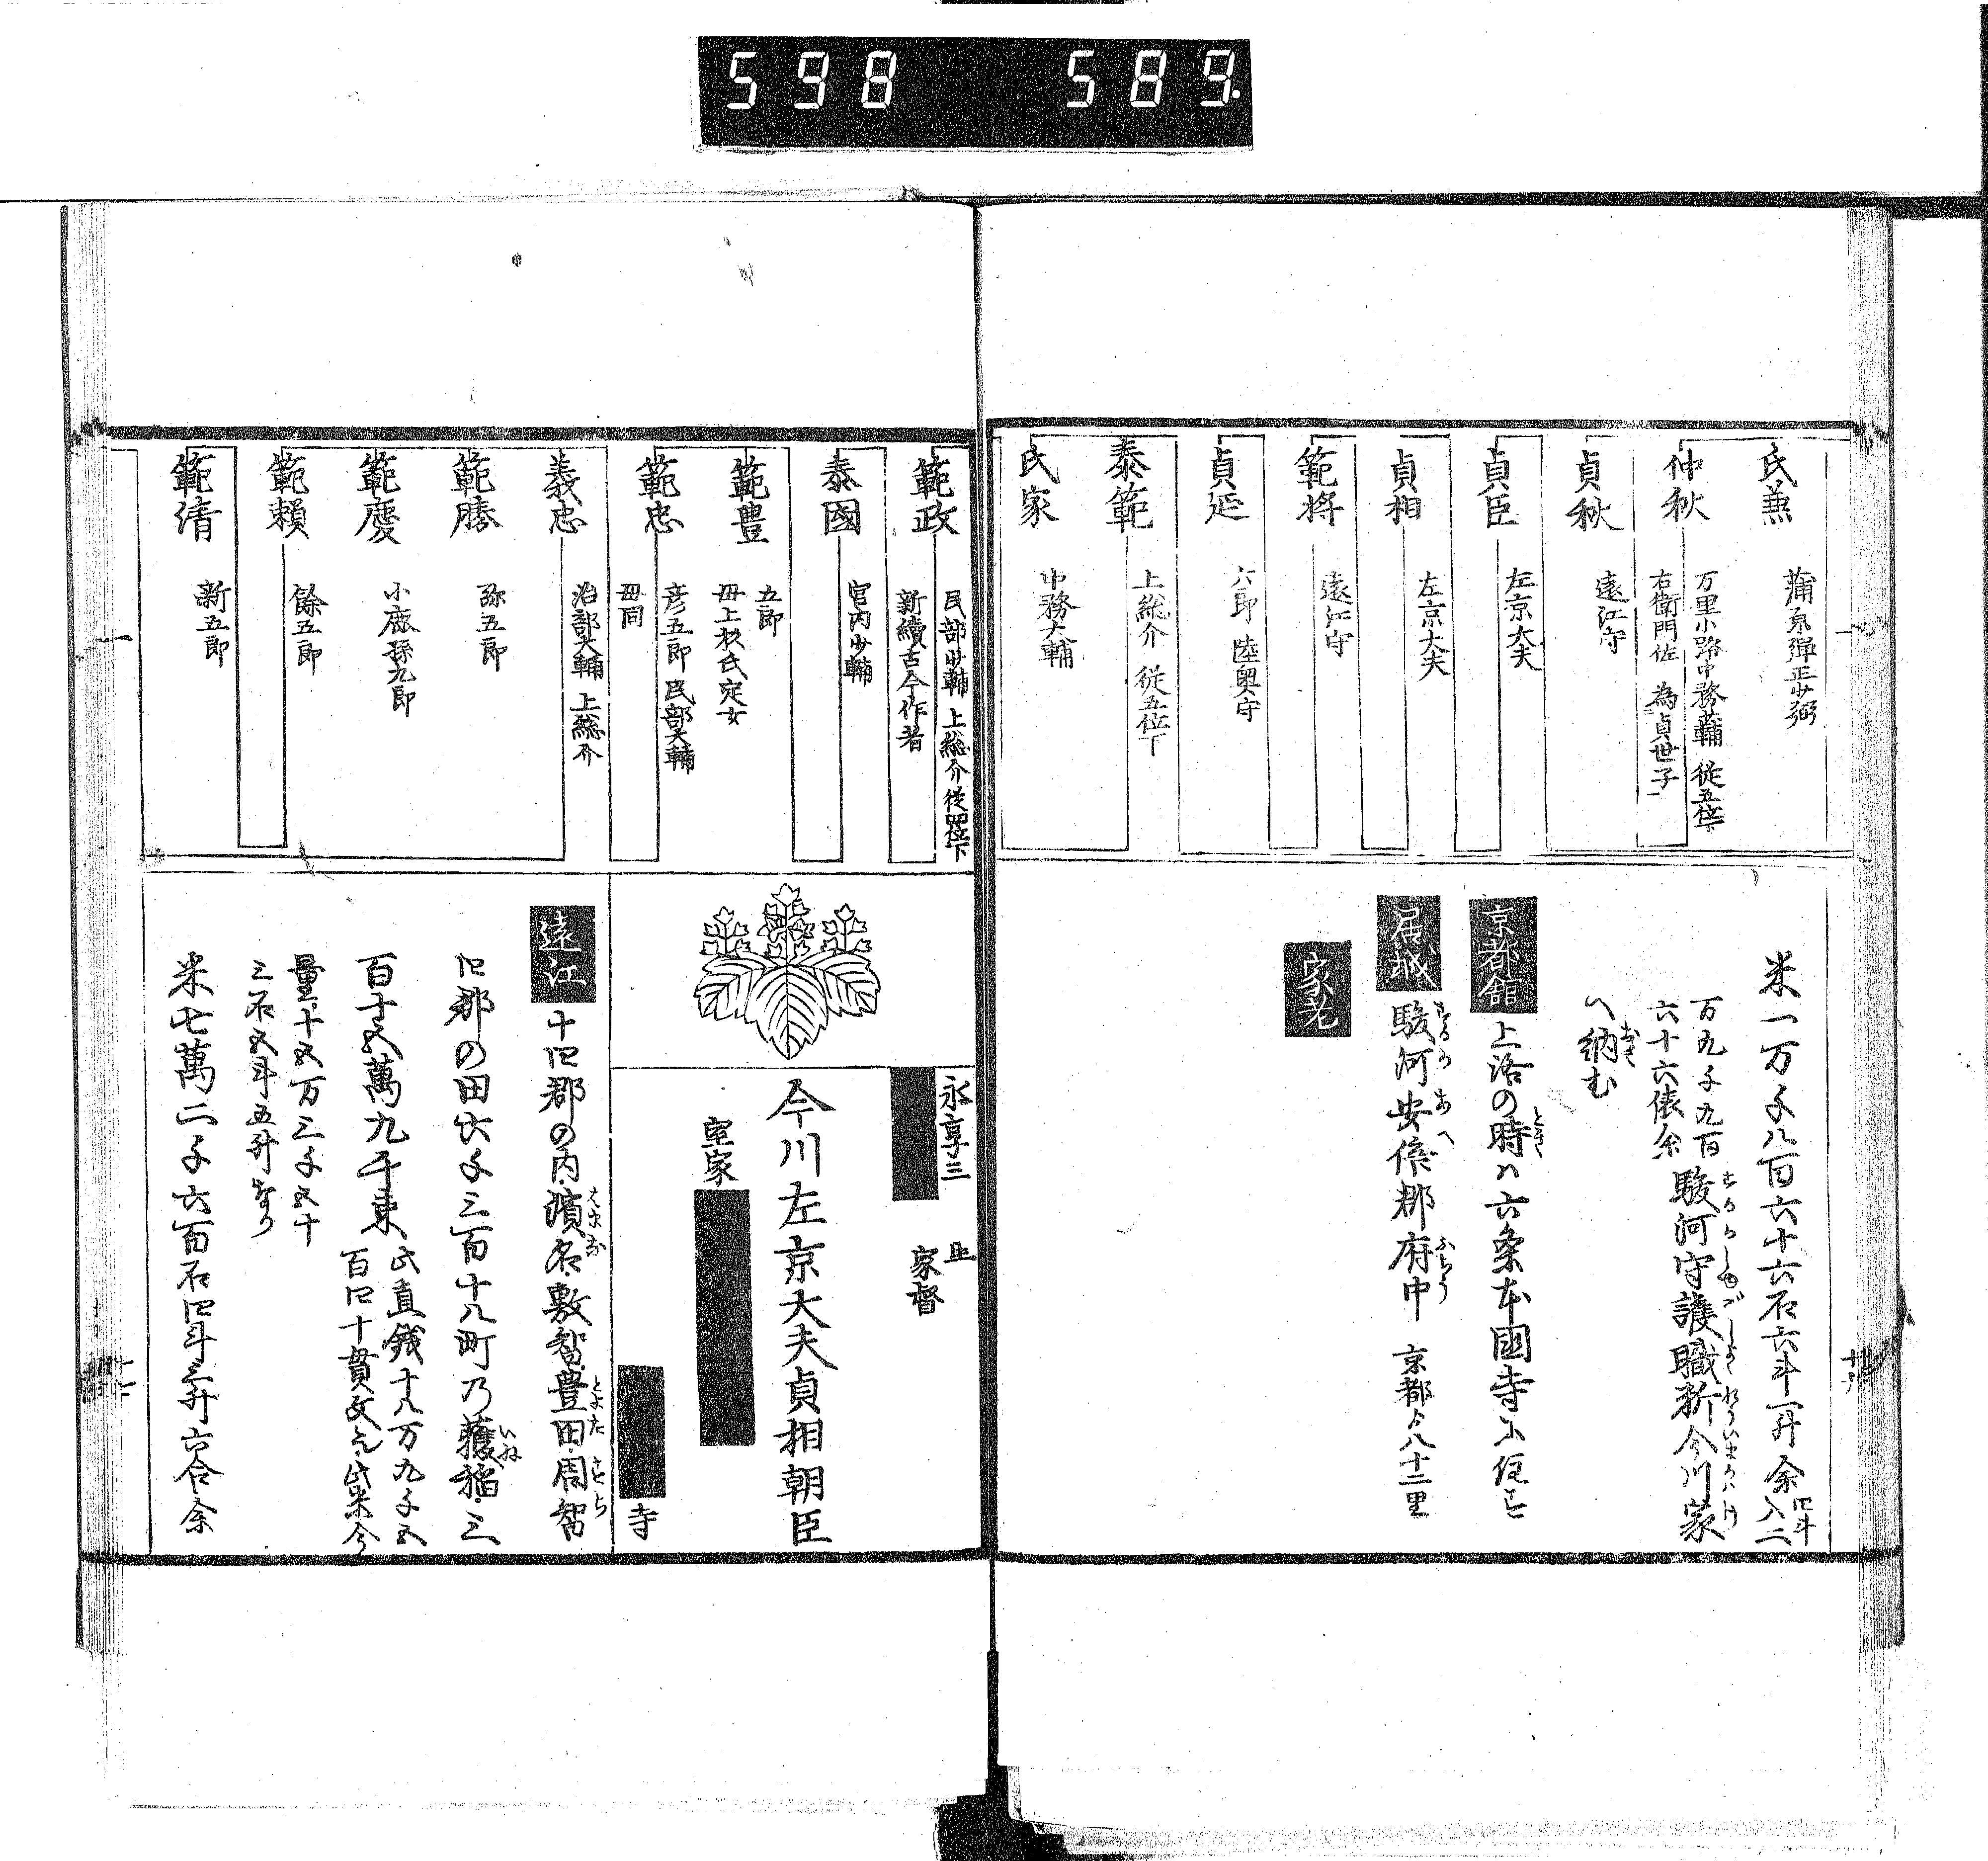 598 589.
氏兼 蒲原彈正少弼
仲秋 万里小路中務大輔 從五位下
右衛門佐 為貞世子
貞秋 遠江守
貞臣 左京大夫
貞相 左京大夫
範将 遠江守
貞延 六郎 陸奥守
泰範 上総介 從五位下
氏家 中務大輔
米一万千八百六十六石六斗一升余
四斗入二
万九千九百
六十六俵余
駿河守護職拆今川家
へ納む
京都舘 上洛の時ハ六条本國寺に住す
居城 駿河安倍郡府中 京都より八十二里
家老
範政 民部少輔 上総介 從四位下
新續古今作者
泰國 宮内少輔
範豊 五郎
毋上杦氏定女
範忠 彦五郎 民部大輔
毋同
義忠 治部大輔 上総介
範勝 弥五郎
範慶 小鹿孫九郎
範頼 餘五郎
範清 新五郎
永享三
家督
今川左京大夫貞相朝臣
室家
寺
遠江 十四郡の内濱名敷智豊田周智
四郡の田六千三百十八町乃穫稲三
百十五萬九千束
此直錢十八万九千五
百四十貫文也此米今
量十五万三千五十
三石五斗五升なり
米七萬二千六百石四斗三升六合余